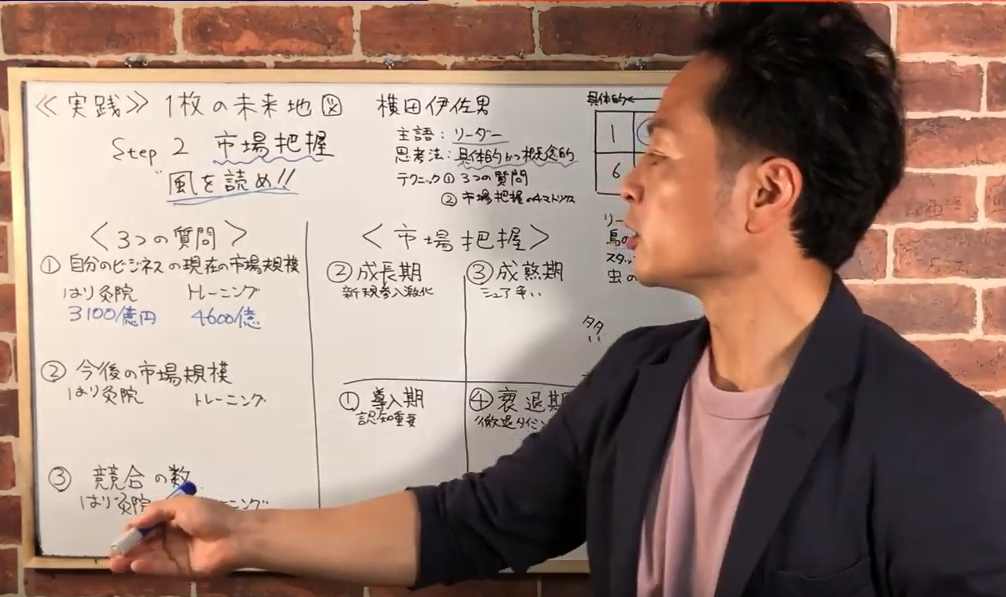 ≪実践≫ 1枚の未来地図 横田伊佐男
Step 2 市場把握
風を読め!!
主語：リーダー
思考法：具体的かつ概念的
テクニック① 3つの質問
② 市場把握の4マトリクス
具体的←
1
6
リー
鳥の
スタッ
虫の
＜3つの質問＞
① 自分のビジネスの現在の市場規模
はり灸院 トレーニング
3100億円 4600億
② 今後の市場規模
はり灸院 トレーニング
③ 競合の数
はり灸院 ーニング
＜市場把握＞
② 成長期
新規参入激化
③ 成熟期
シェア争い
多い
① 導入期
認知重要
④ 衰退期
撤退タイミン